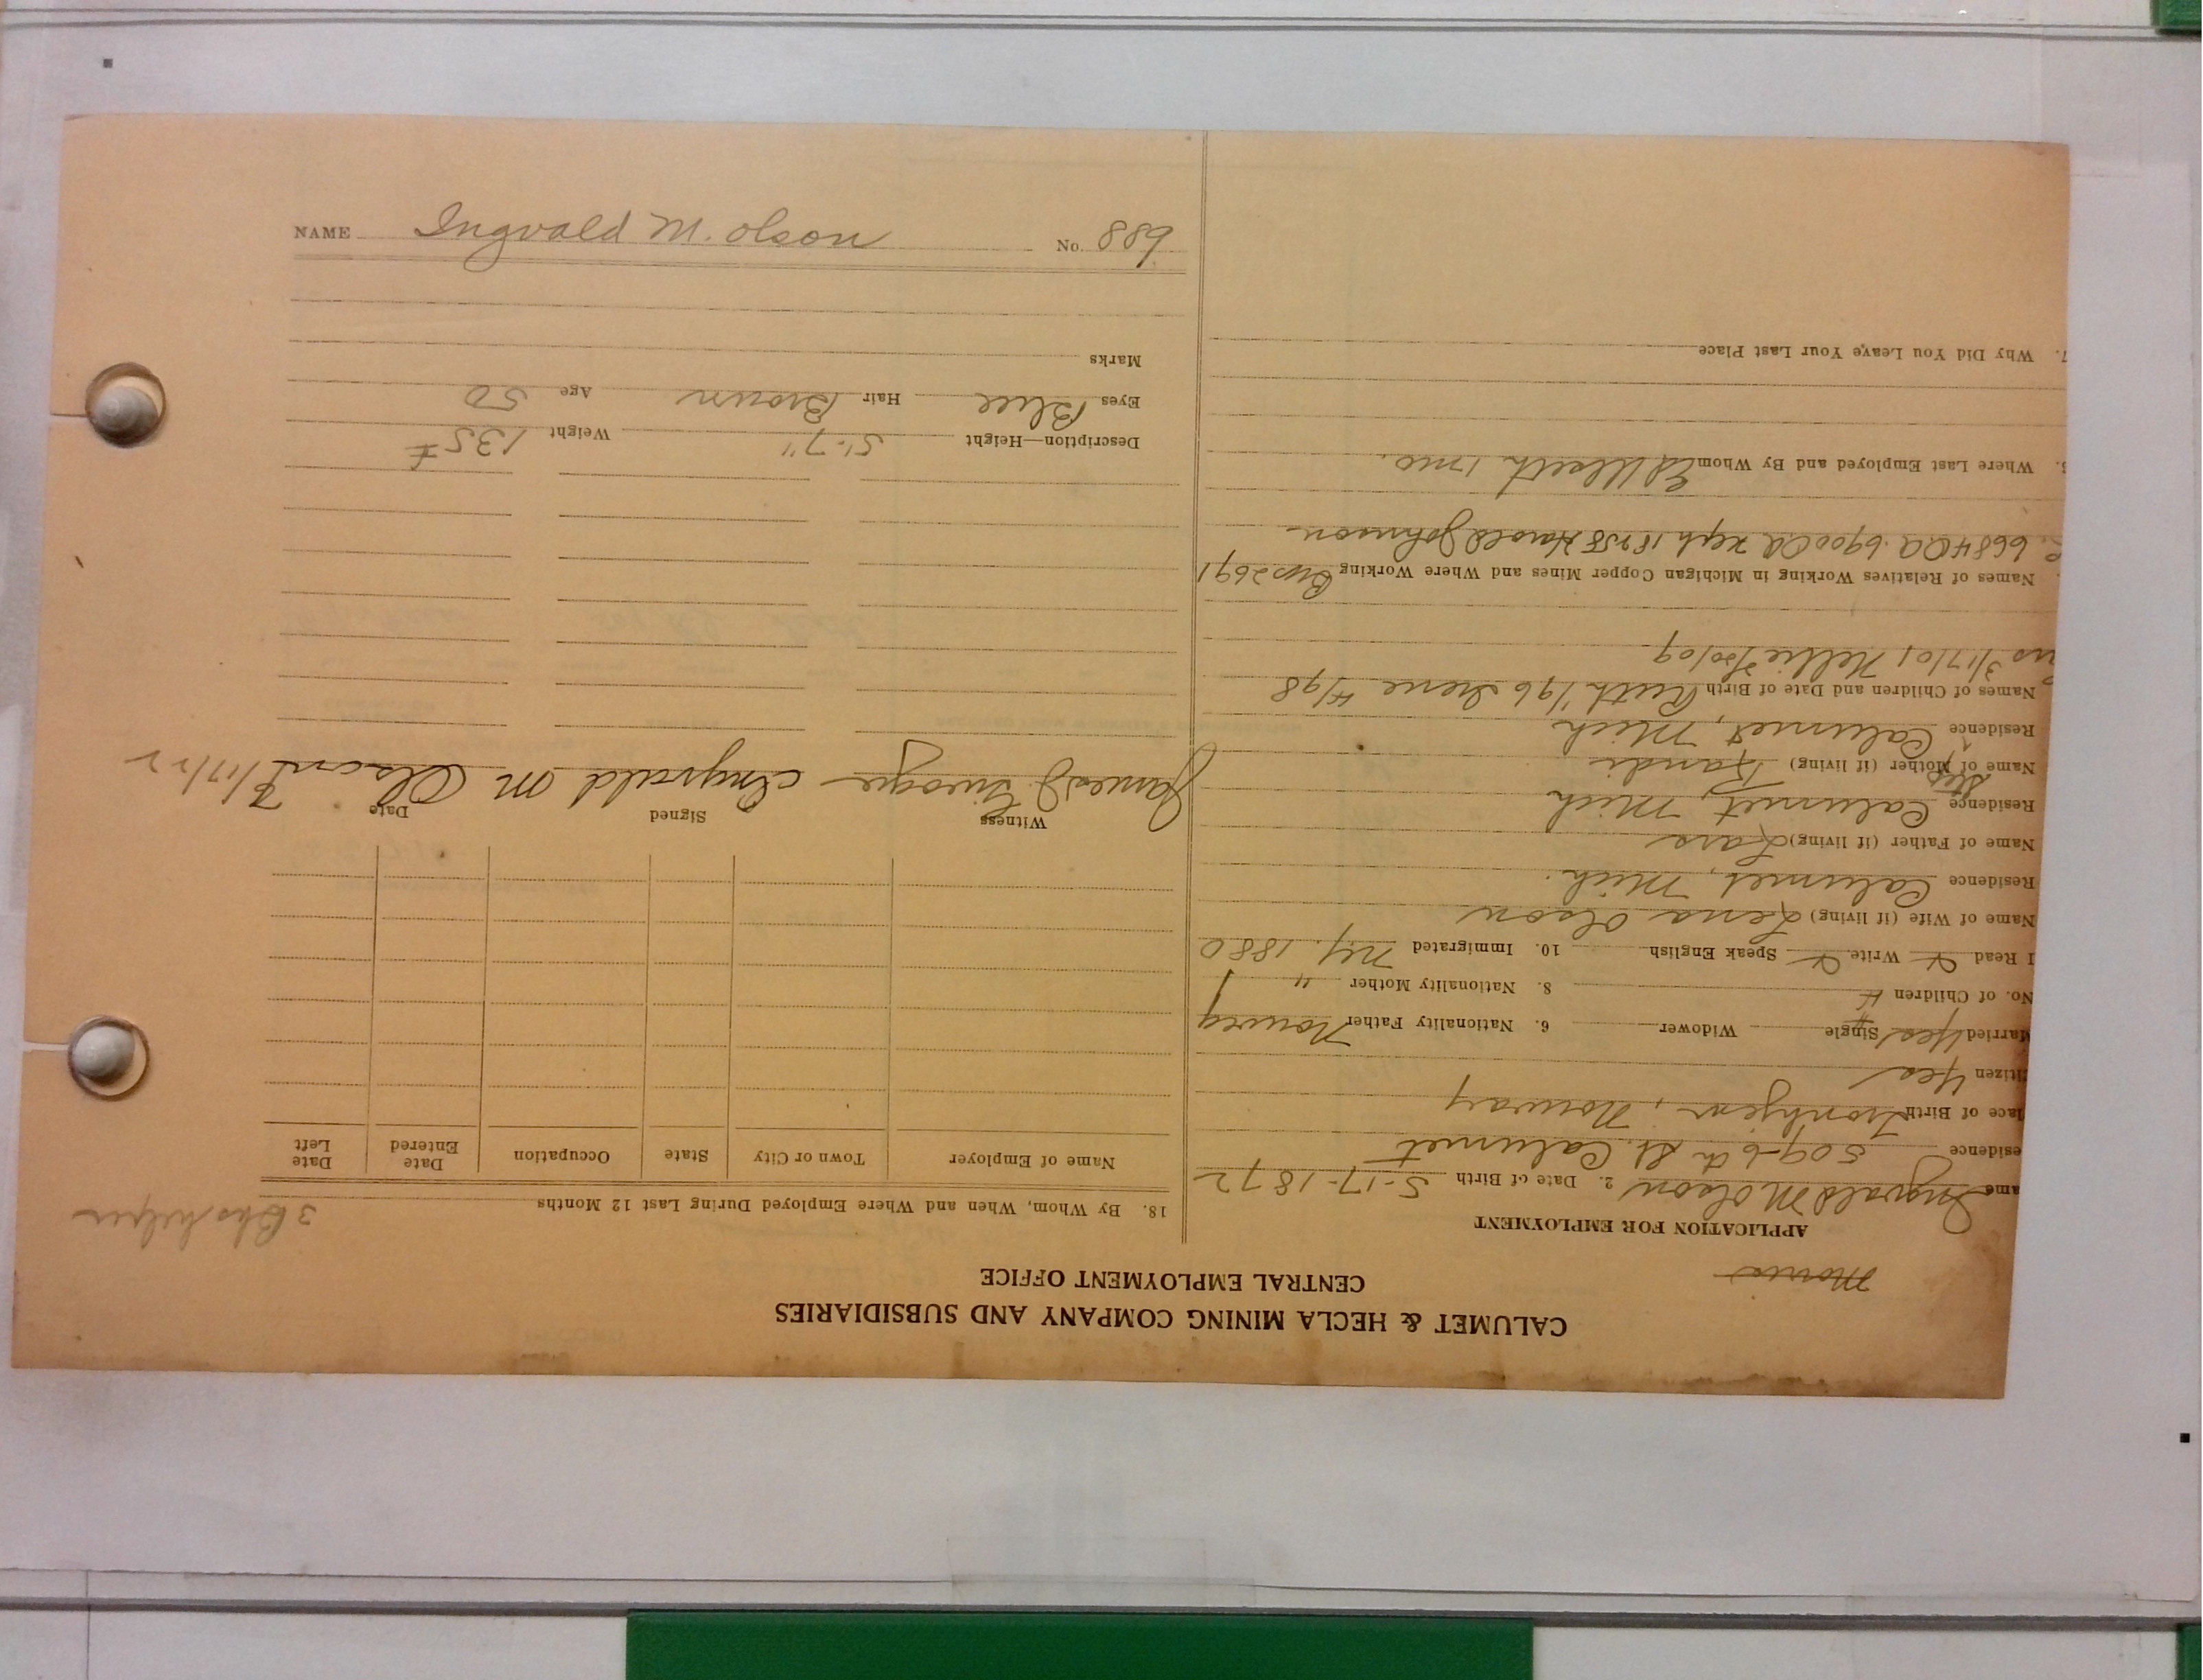 CALUMET & HECLA MINING COMPANY AND SUBSIDIARIES
CENTRAL EMPLOYMENT OFFICE
APPLICATION FOR EMPLOYMENT
ame Ingvald M Olson 2. Date of Birth 5-17-1872
esidence 509-6th St. Calumet
lace of Birth Tronhjem, Norway
itizen Yes
Married Yes Single Widower 6. Nationality Father Norweg
No. of Children 4 8. Nationality Mother "
I Read Write Speak English 10. Immigrated N.Y. 1880
Name of Wife (if living) Lena Olson
Residence Calumet, Mich.
Name of Father (if living) Lars
Residence Calumet, Mich
Name of Step Mother (if living) Randi
Residence Calumet, Mich
Names of Children and Date of Birth Ruth 1/96 Irene 4/98
3/17/01 Nellie /09
Names of Relatives Working in Michigan Copper Mines and Where Working Bros 2691
6684 6900 18258 Harold Johnson
Where Last Employed and By Whom Ed 1 mo.
7. Why Did You Leave Your Last Place
3 helper
18. By Whom, When and Where Employed During Last 12 Months
Name of Employer Town or City State Occupation Date Entered Date Left
Witness Signed Date
James J. Ingvald M Olson /17/22
Description—Height 5'-7" Weight 135 #
Eyes Blue Hair Brown Age 50
Marks
NAME Ingvald M. Olson No. 889